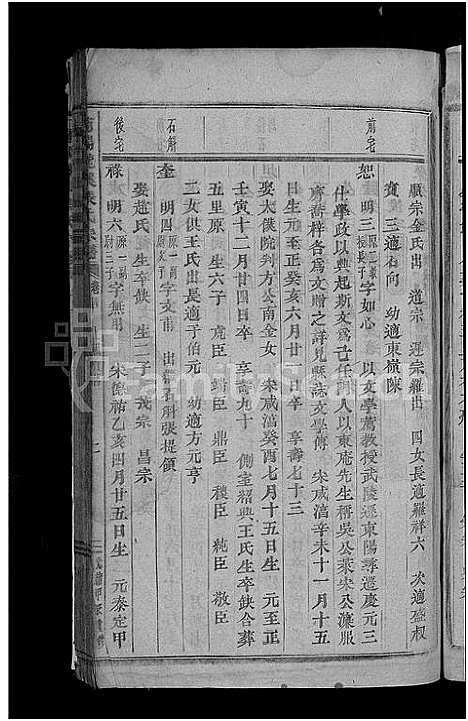 顯宗金氏出 道宗 運宗羅出 四女長適羅祥六 次適盛权
寬 三適石向 幼適東嶺陳
前宅
恕 明三 字如心 以文學薦教授武陵遷東陽尋遷慶元三
什學政以興起斯文為己任嗣人以東庵先生稱吳公萊宋公濂服
齋喬梓各為文贈之詳見縣誌文學傳 宋咸淳辛未十一月十五
日生元至正癸亥六月初一日卒 享壽七十三
娶太僕院判方公南金女 宋咸淳癸酉七月十五日生 元至正
壬寅十二月廿四日卒 享壽九十 側室紹興王氏生卒缺合葬
五里原 生六子 堯臣 鼎臣 稷臣 純臣 敬臣
二女俱王氏出長適于伯元 幼適方元亨
石斛
奎 明四 原一 字文甫 出 石斛張提領
娶趙氏生卒缺 生二子 茂宗 昌宗
後宅
祿 明六 原一 尉三子 字無用 宋德祐乙亥四月廿五日生 元泰定甲